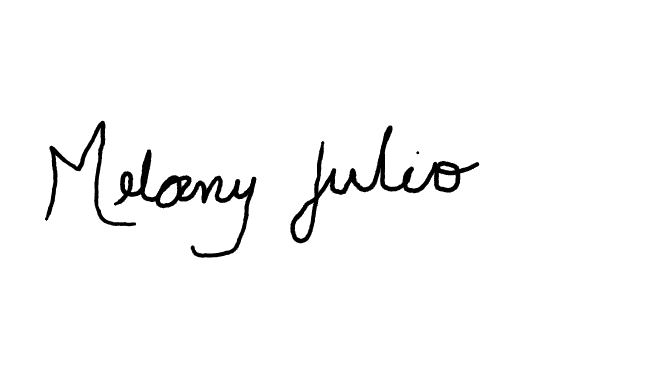 Melany Julio